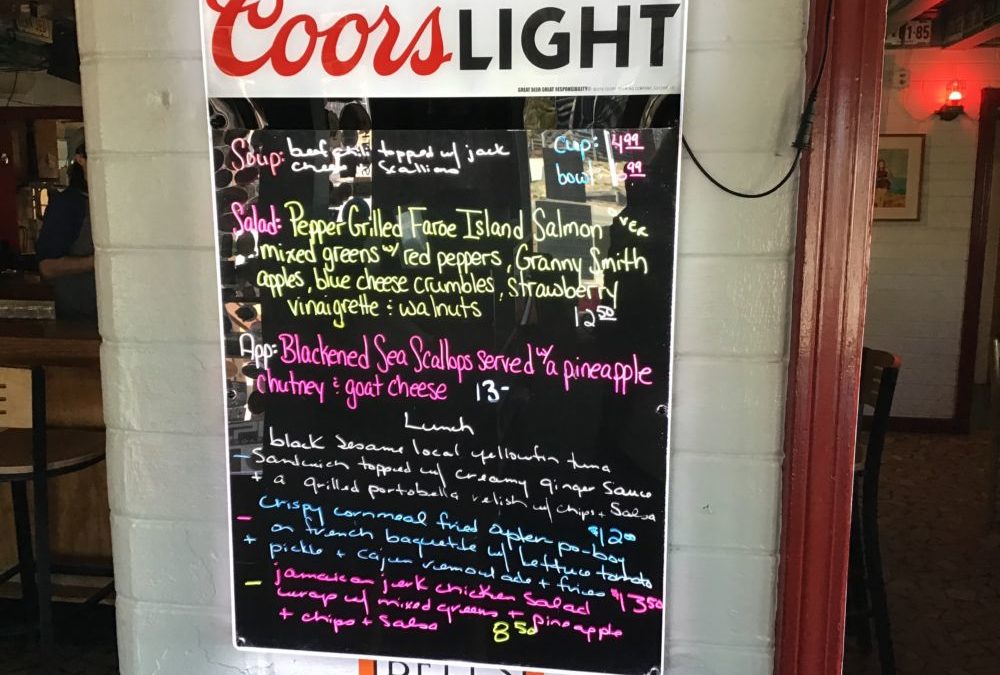 Coors LIGHT
GREAT BEER GREAT RESPONSIBILITY
Soup: beef chili topped w/ jack
cheese + scallions
Cup: 4.99
bowl: 6.99
Salad: Pepper Grilled Faroe Island Salmon over
mixed greens w/ red peppers, Granny Smith
apples, blue cheese crumbles, strawberry
vinaigrette + walnuts 12.50
App: Blackened Sea Scallops served w/ a pineapple
chutney + goat cheese 13-
Lunch
black sesame local yellowfin tuna
- Sandwich topped w/ creamy ginger sauce
+ a grilled portobella relish w/ chips + Salsa
$12.00
- crispy cornmeal fried oyster po-boy
on french baguette w/ lettuce tomato
+ pickle + cajun remoulade + fries $13.50
- jamaican jerk chicken salad
wrap w/ mixed greens + pineapple
+ chips + salsa 8.50
BELL'S
01-85